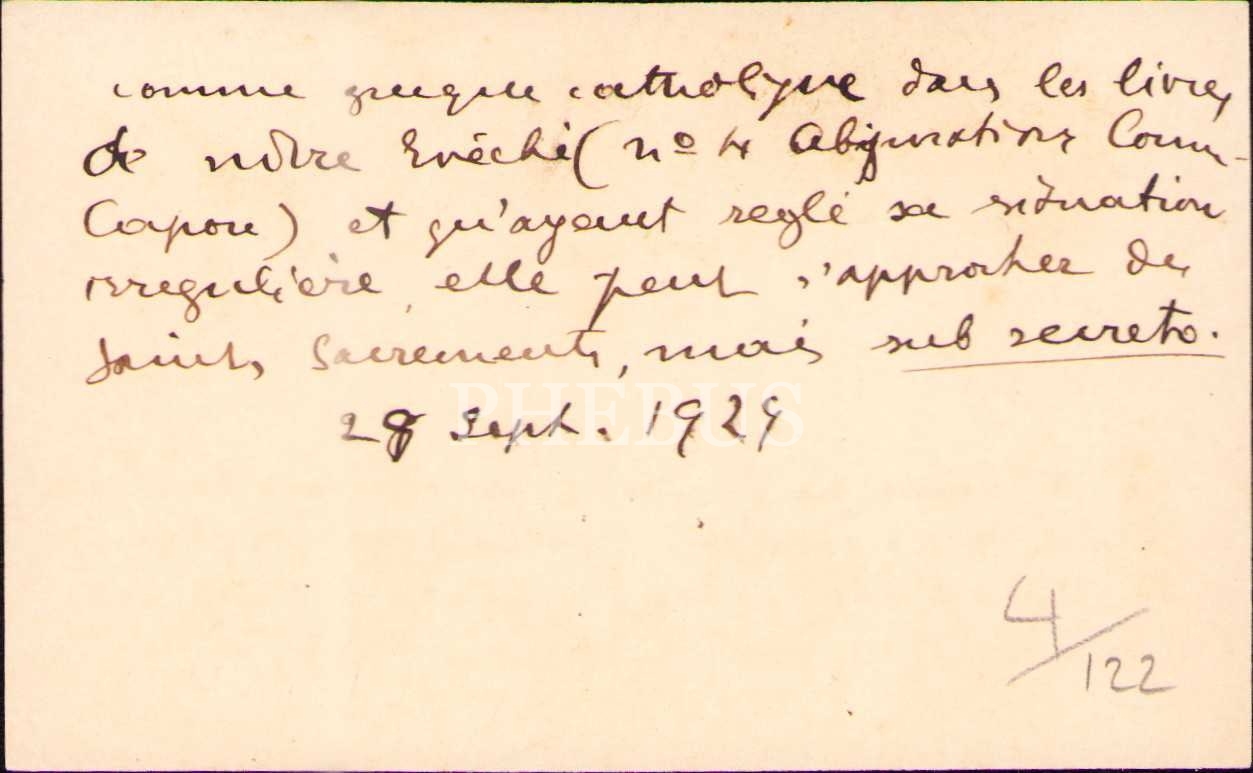 comme grecque catholique dans les livres
de notre Evêché (nº 4 Abjurations Coum-
Capou) et qu'ayant reglé sa situation
irregulière, elle peut s'approcher des
Saints Sacrements, mais sub secreto.
PHEBUS
28 Sept. 1929
4/122